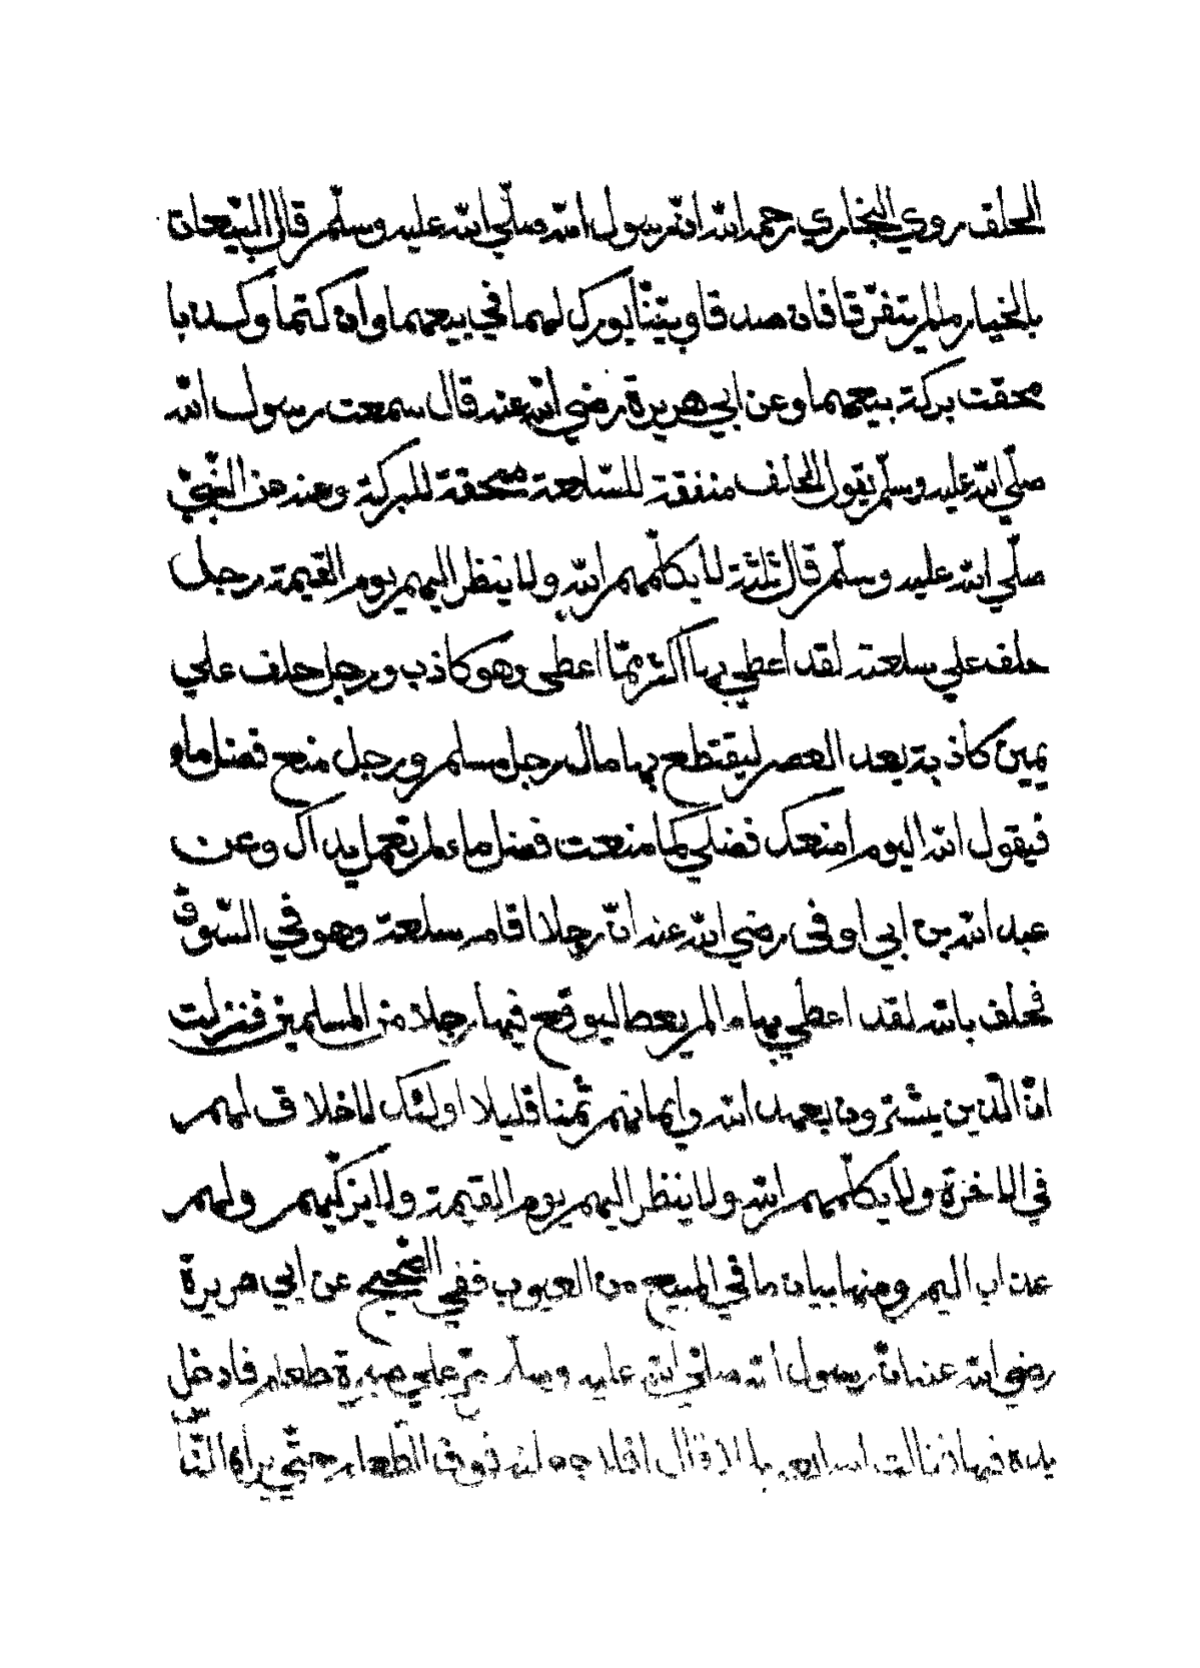 الحلف روي البخاري رحمه الله انّ رسول الله صلّي الله عليه وسلّم قال البيّعان
بالخيار مالم يتفرّقا فان صدقا وبيّنا بورك لهما في بيعهما وان كتما وكذبا
محقت بركة بيعهما وعن ابي هريرة رضي الله عنه قال سمعت رسول الله
صلّي الله عليه وسلّم يقول الحلف منفقة للسّلعة ممحقة للبركة وعنه عن النّبيّ
صلّي الله عليه وسلّم قال ثلثة لا يكلّمهم الله ولا ينظر اليهم يوم القيمة رجل
حلف علي سلعته لقد اعطي بها اكثر ممّا اعطى وهو كاذب ورجل حلف علي
يمين كاذبة بعد العصر ليقتطع بها مال رجل مسلم ورجل منع فضل ماء
فيقول الله اليوم امنعك فضلي كما منعت فضل ماء لم تعمل يداك وعن
عبد الله بن ابي اوفى رضي الله عنه انّ رجلا اقام سلعة وهو في السّوق
فحلف بالله لقد اعطي بها مالم يعط ليوقع فيها رجلا من المسلمين فنزلت
انّ الّذين يشترون بعهد الله وايمانهم ثمنا قليلا اولئك لا خلاق لهم
في الاخرة ولا يكلّمهم الله ولا ينظر اليهم يوم القيمة ولا يزكّيهم ولهم
عذاب اليم ومنها بيان ما في المبيع من العيوب ففي الصّحيح عن ابي هريرة
رضي الله عنه انّ رسول الله صلّي الله عليه وسلّم مرّ علي صبرة طعام فادخل
يده فيها فنالت اصابعه بللا قال افلا جعلته فوق الطّعام حتّي يراه النّاس